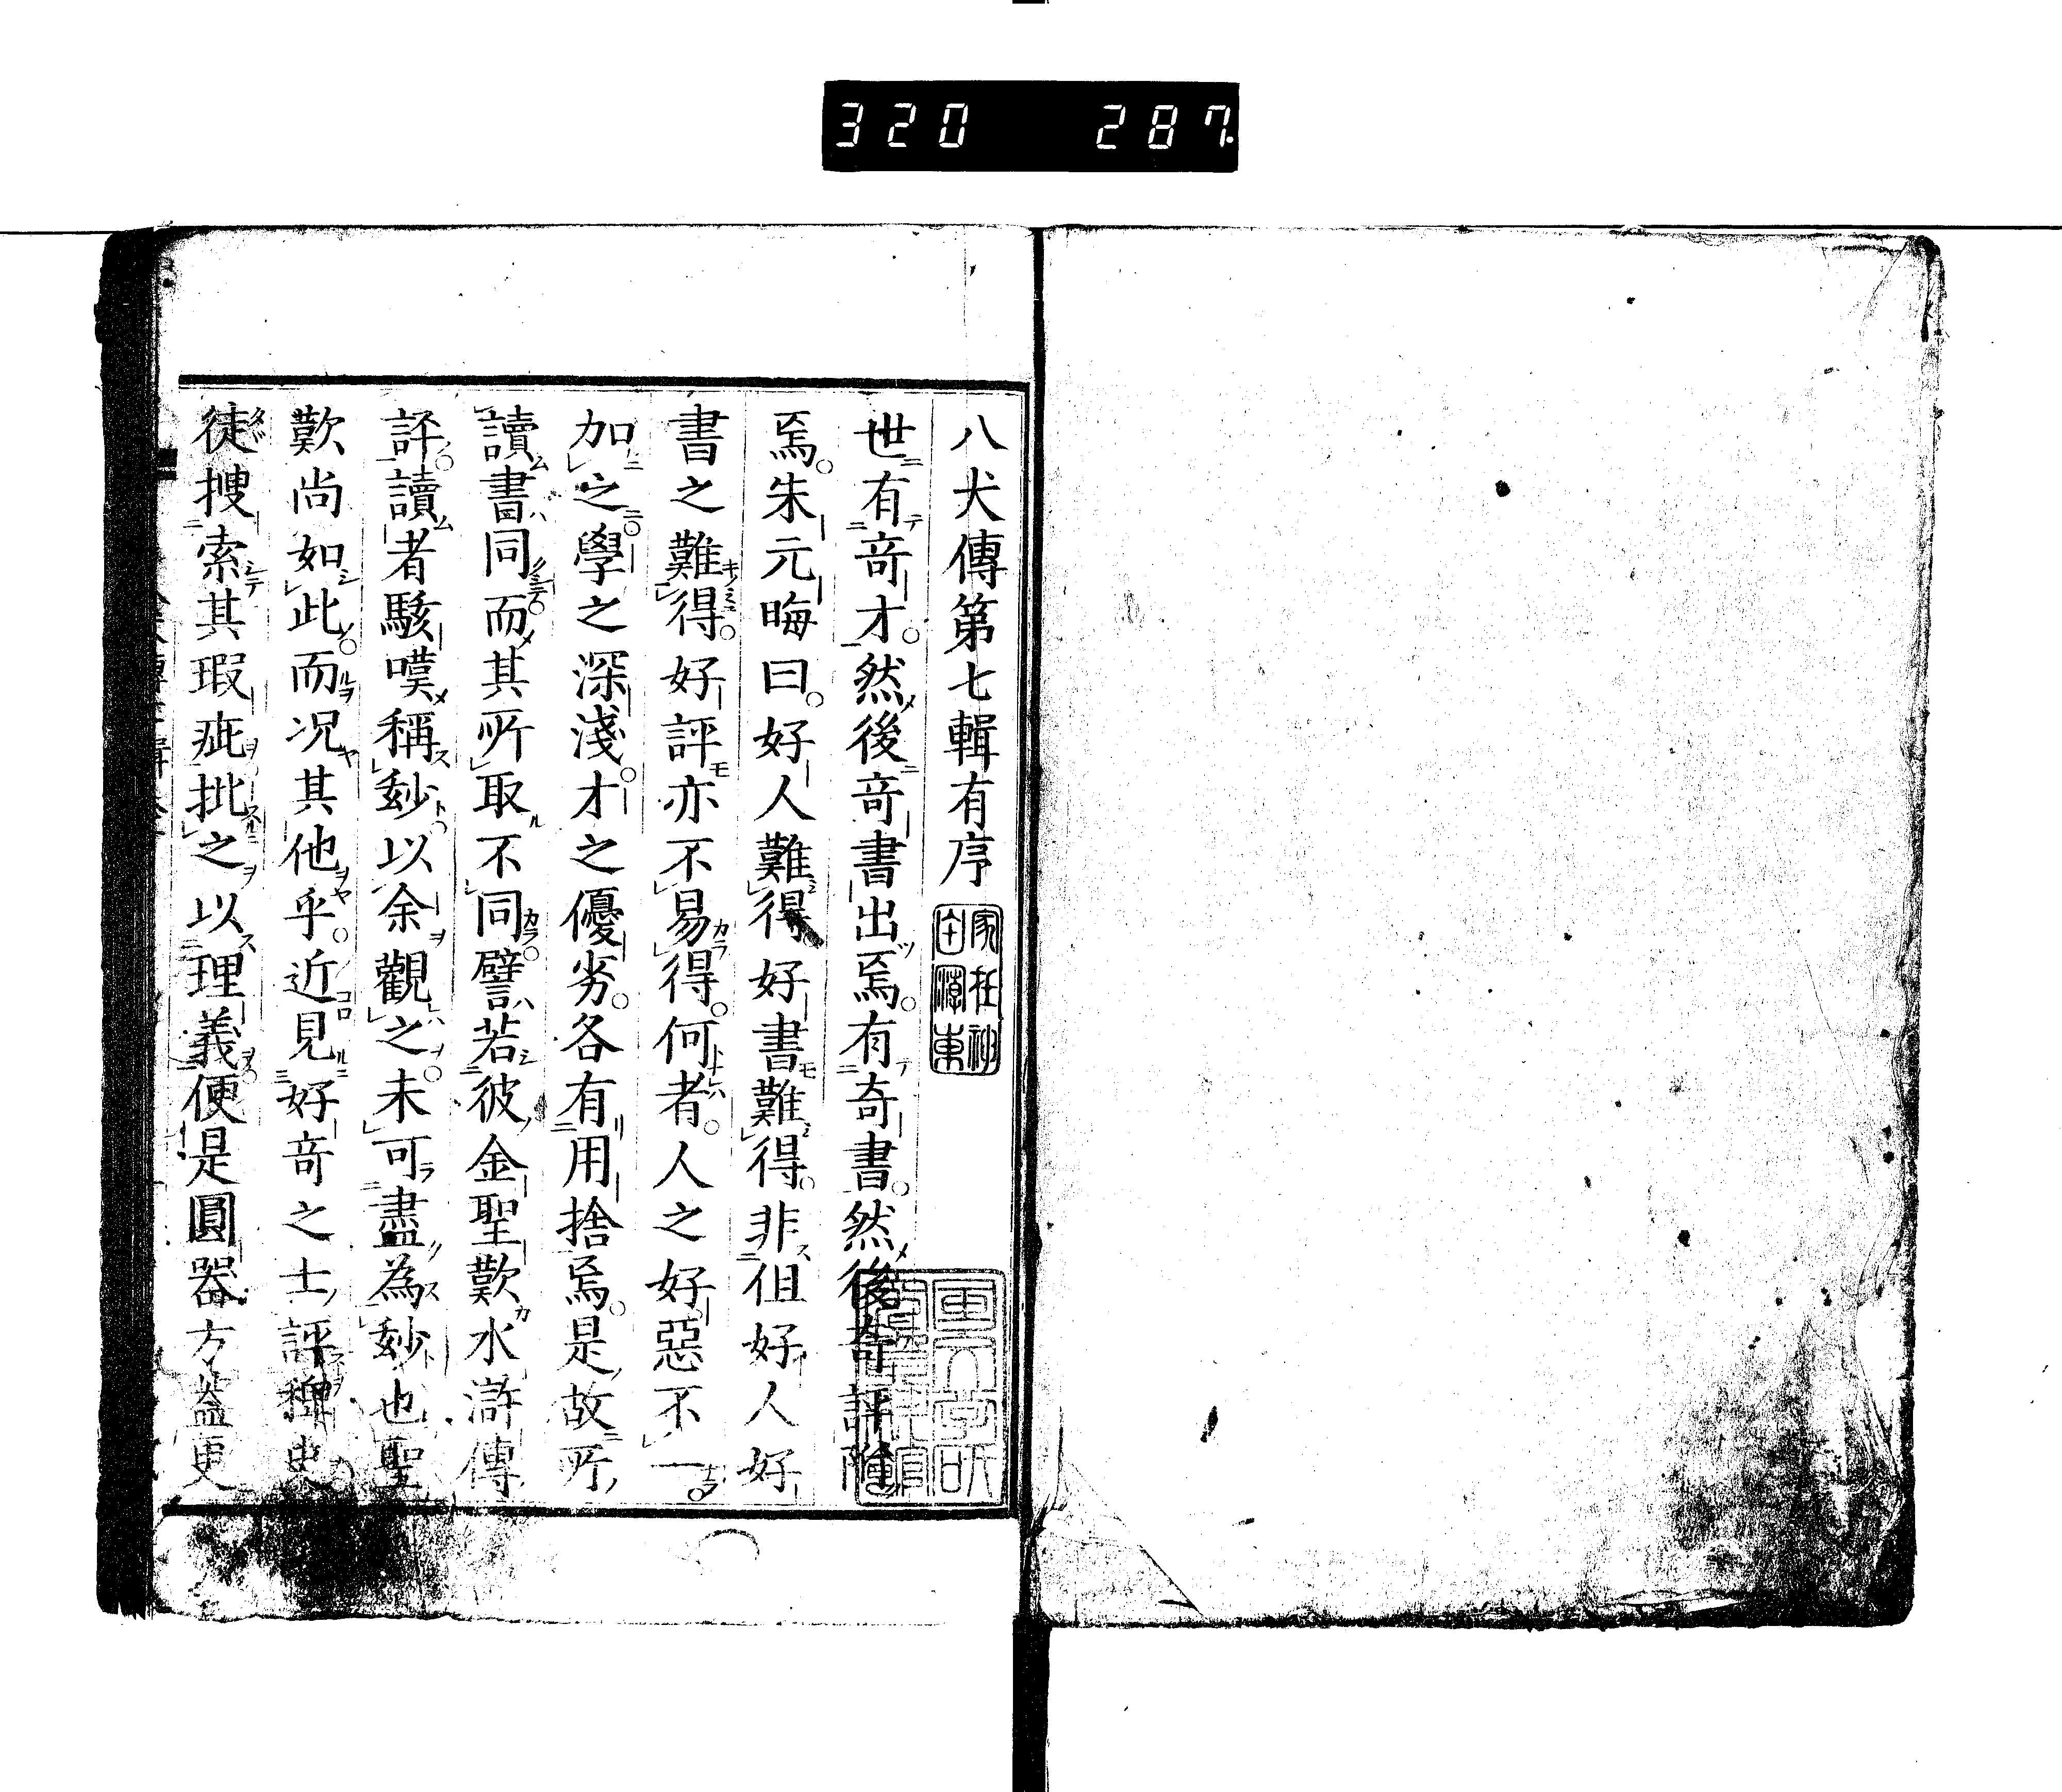 320 287
八犬傳第七輯有序
世有竒才。然後竒書出焉。有奇書。然後奇評隨
焉。朱元晦曰。好人難得好書難得。非但好人好
書之難得。好評亦不易得。何者。人之好惡不一。
加之。學之深淺。才之優劣。各有用捨焉。是故所
讀書同而其所取不同。譬若彼金聖歎水滸傳
評。讀者駭嘆稱玅。以余觀之。未可盡為玅也。聖
歎尚如此。而况其他乎。近見好竒之士評稗史
徒搜索其瑕疵批之以理義。便是圓器方蓋更